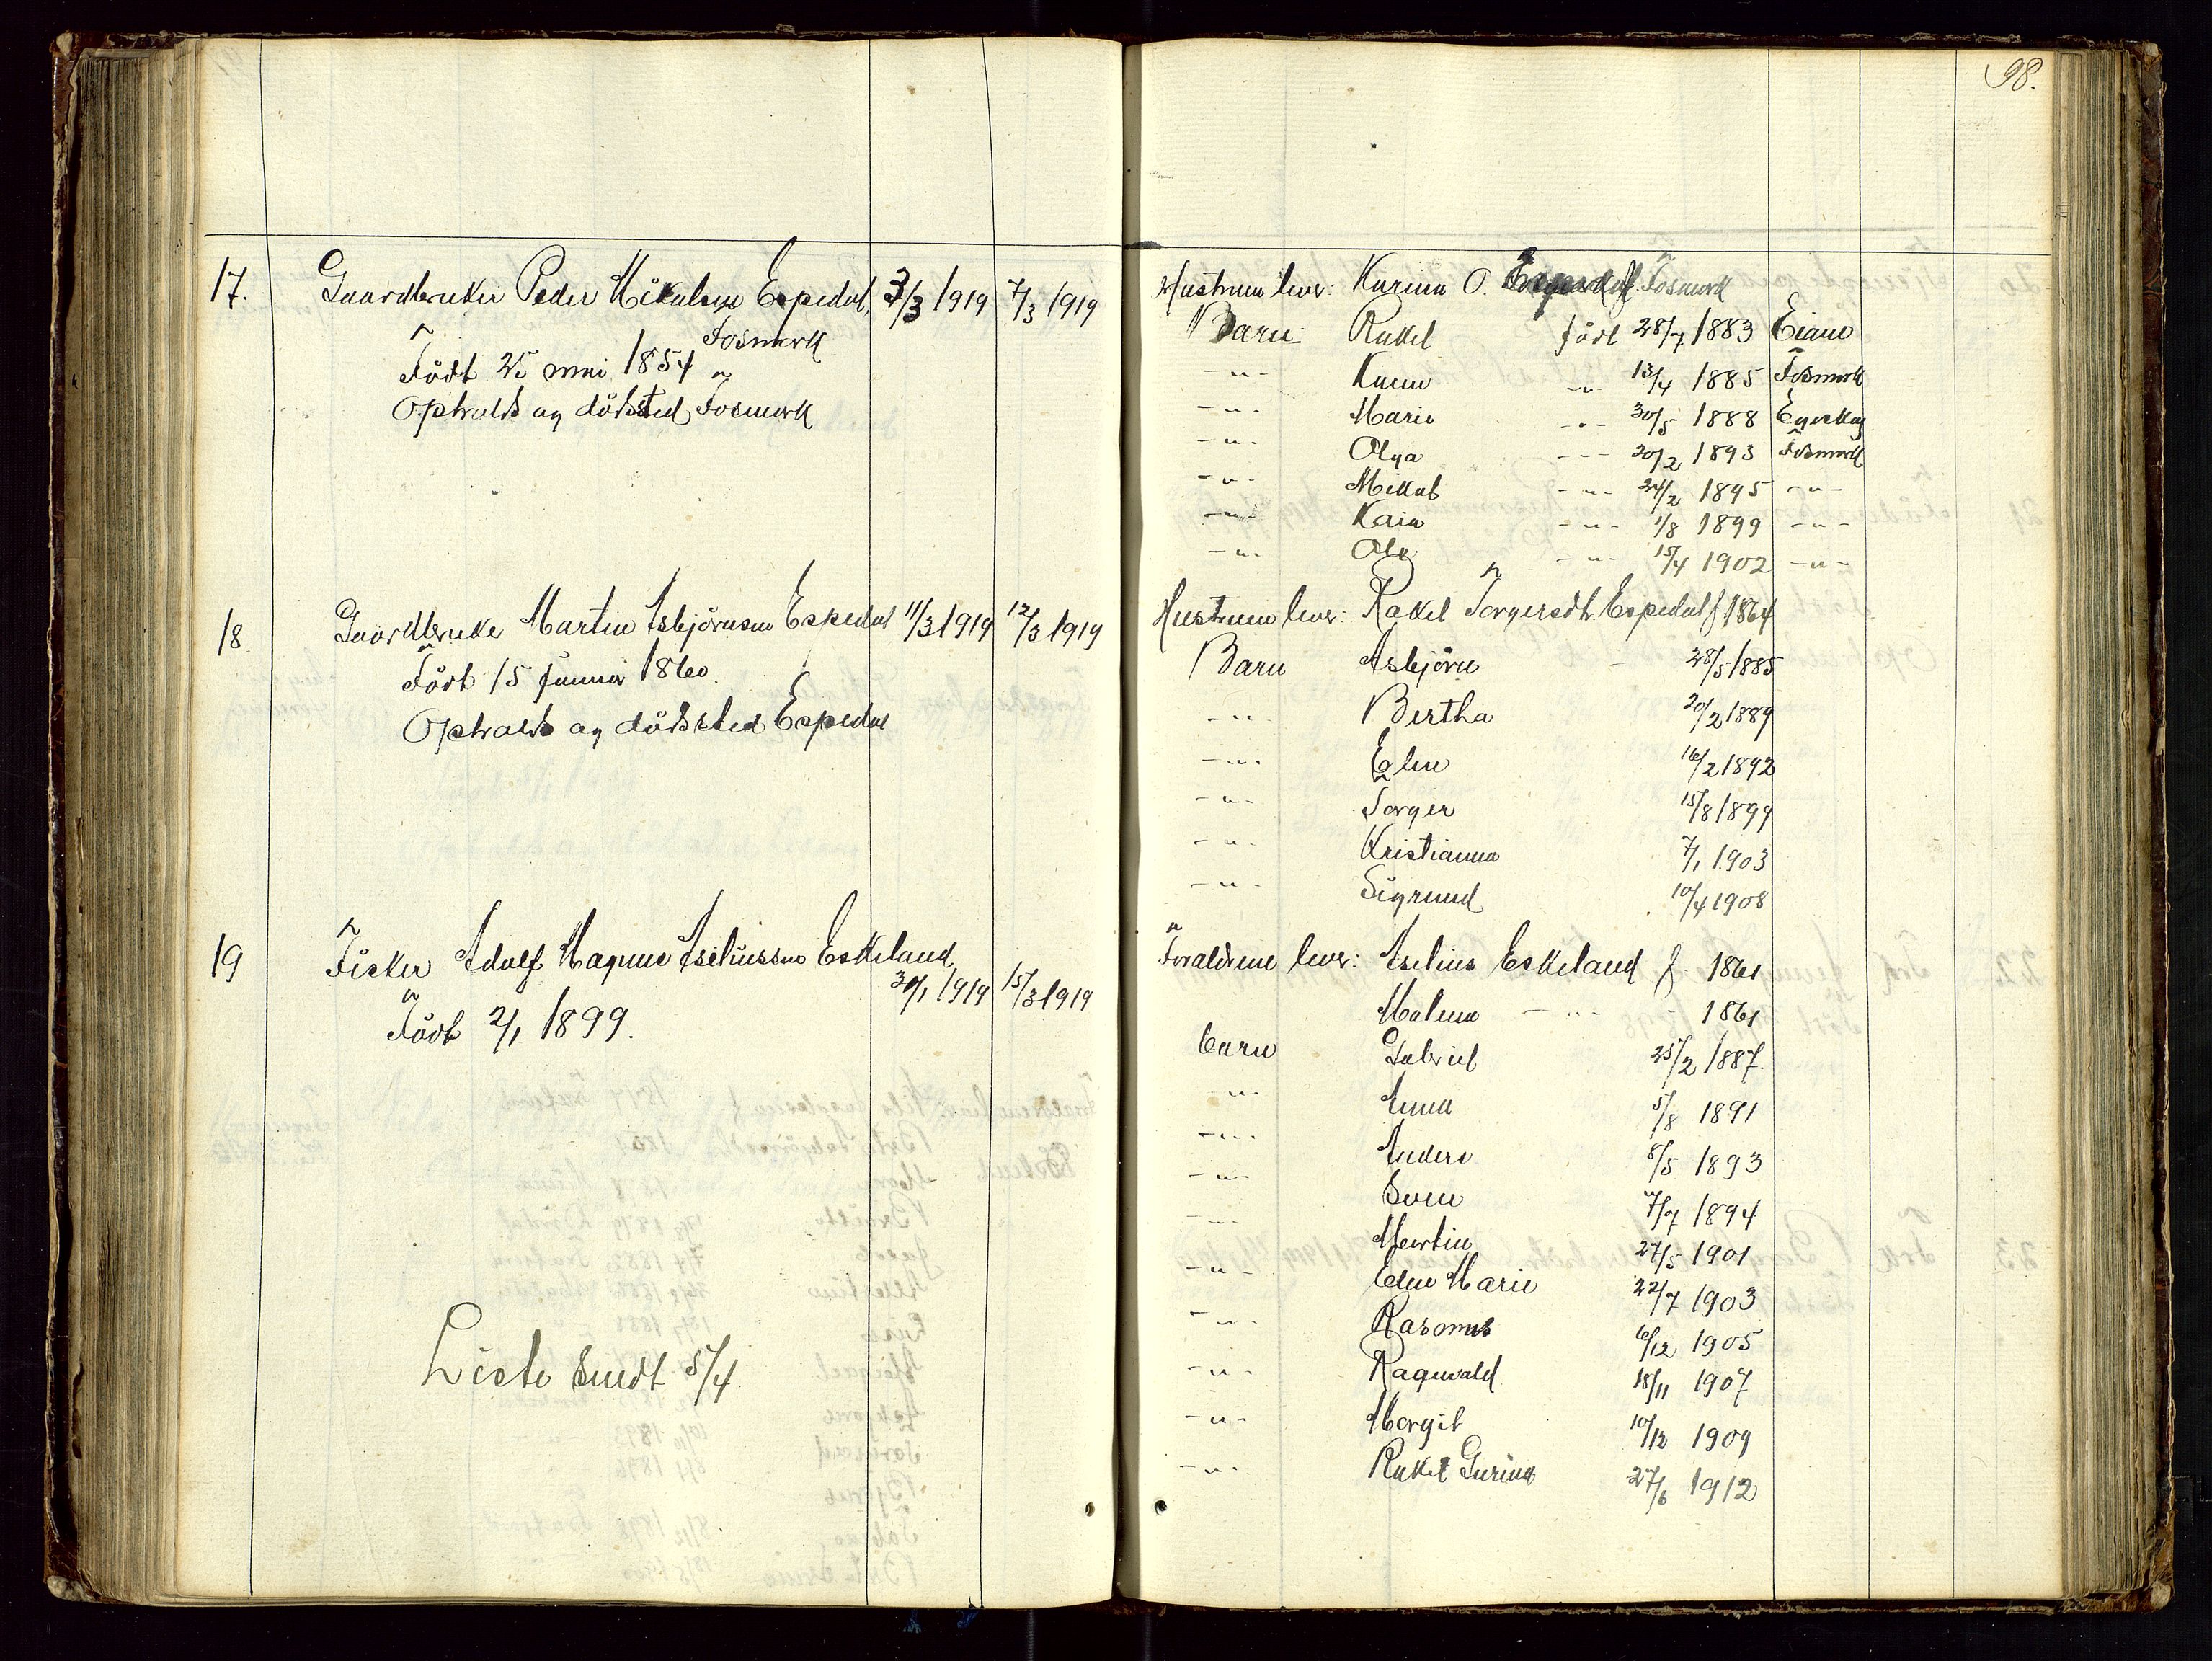 98.
17. Gaardbruker Peder Mikalsen Espedal, 3/3 1919 7/3 1919
Fosmark
Född 25 mai 1854
Ophalds og dödsted Fosmark
18 Gaardbruker Martin Asbjörnsen Espedal 11/3 1919 12/3 1919
Född 15 Januar 1860.
Ophalds og dödssted Espedal
19 Fisker Adolf Magnus Aseliussen Eskeland
30/1 1919 15/3 1919
Född 2/1 1899.
Liste sendt 5/4
Hustruen lever: Karina O. Fosmark
Barn Rakel född 28/7 1883 Eiane
-"- Karen -"- 13/4 1885 Fosmark
-"- Marie -"- 30/5 1888
-"- Olga -"- 20/2 1893 Fosmark
-"- Mikal -"- 24/2 1895 -"-
-"- Kaia -"- 1/8 1899 -"-
-"- Olav -"- 15/4 1902 -"-
Hustruen lever: Rakel Torgersdt. Espedal f 1864
Barn Asbjörn 28/5 1885
-"- Bertha 20/2 1889
-"- Elen 16/2 1892
-"- Torger 15/8 1899
-"- Kristianna 7/1 1903
-"- Sigmund 10/4 1908
Foraldrene lever: Aselius Eskeland f. 1861
Malena -"- 1861
barn Gabriel 25/2 1887.
-"- Anna 5/8 1891
-"- Anders 8/5 1893
-"- Sven 7/7 1894
-"- Martin 27/5 1901
-"- Elen Marie 22/7 1903
-"- Rasmus 6/12 1905
-"- Ragnvald 18/11 1907
-"- Margit 10/12 1909
-"- Rakel Gurina 27/6 1912